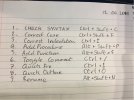 12.06.2018
1. CHECK SYNTAX Ctrl + Shift + C
2. Correct Case Ctrl + Shift + F
3. Correct Indentation Ctrl + I
4. Add Procedure Alt + Shift + P
5. Add Function Alt + Shift + F
6. Toggle Comment Ctrl + /
7. Quick Fix Ctrl + 1
8. Quick Outline Ctrl + O
9. Rename Alt + Shift + R